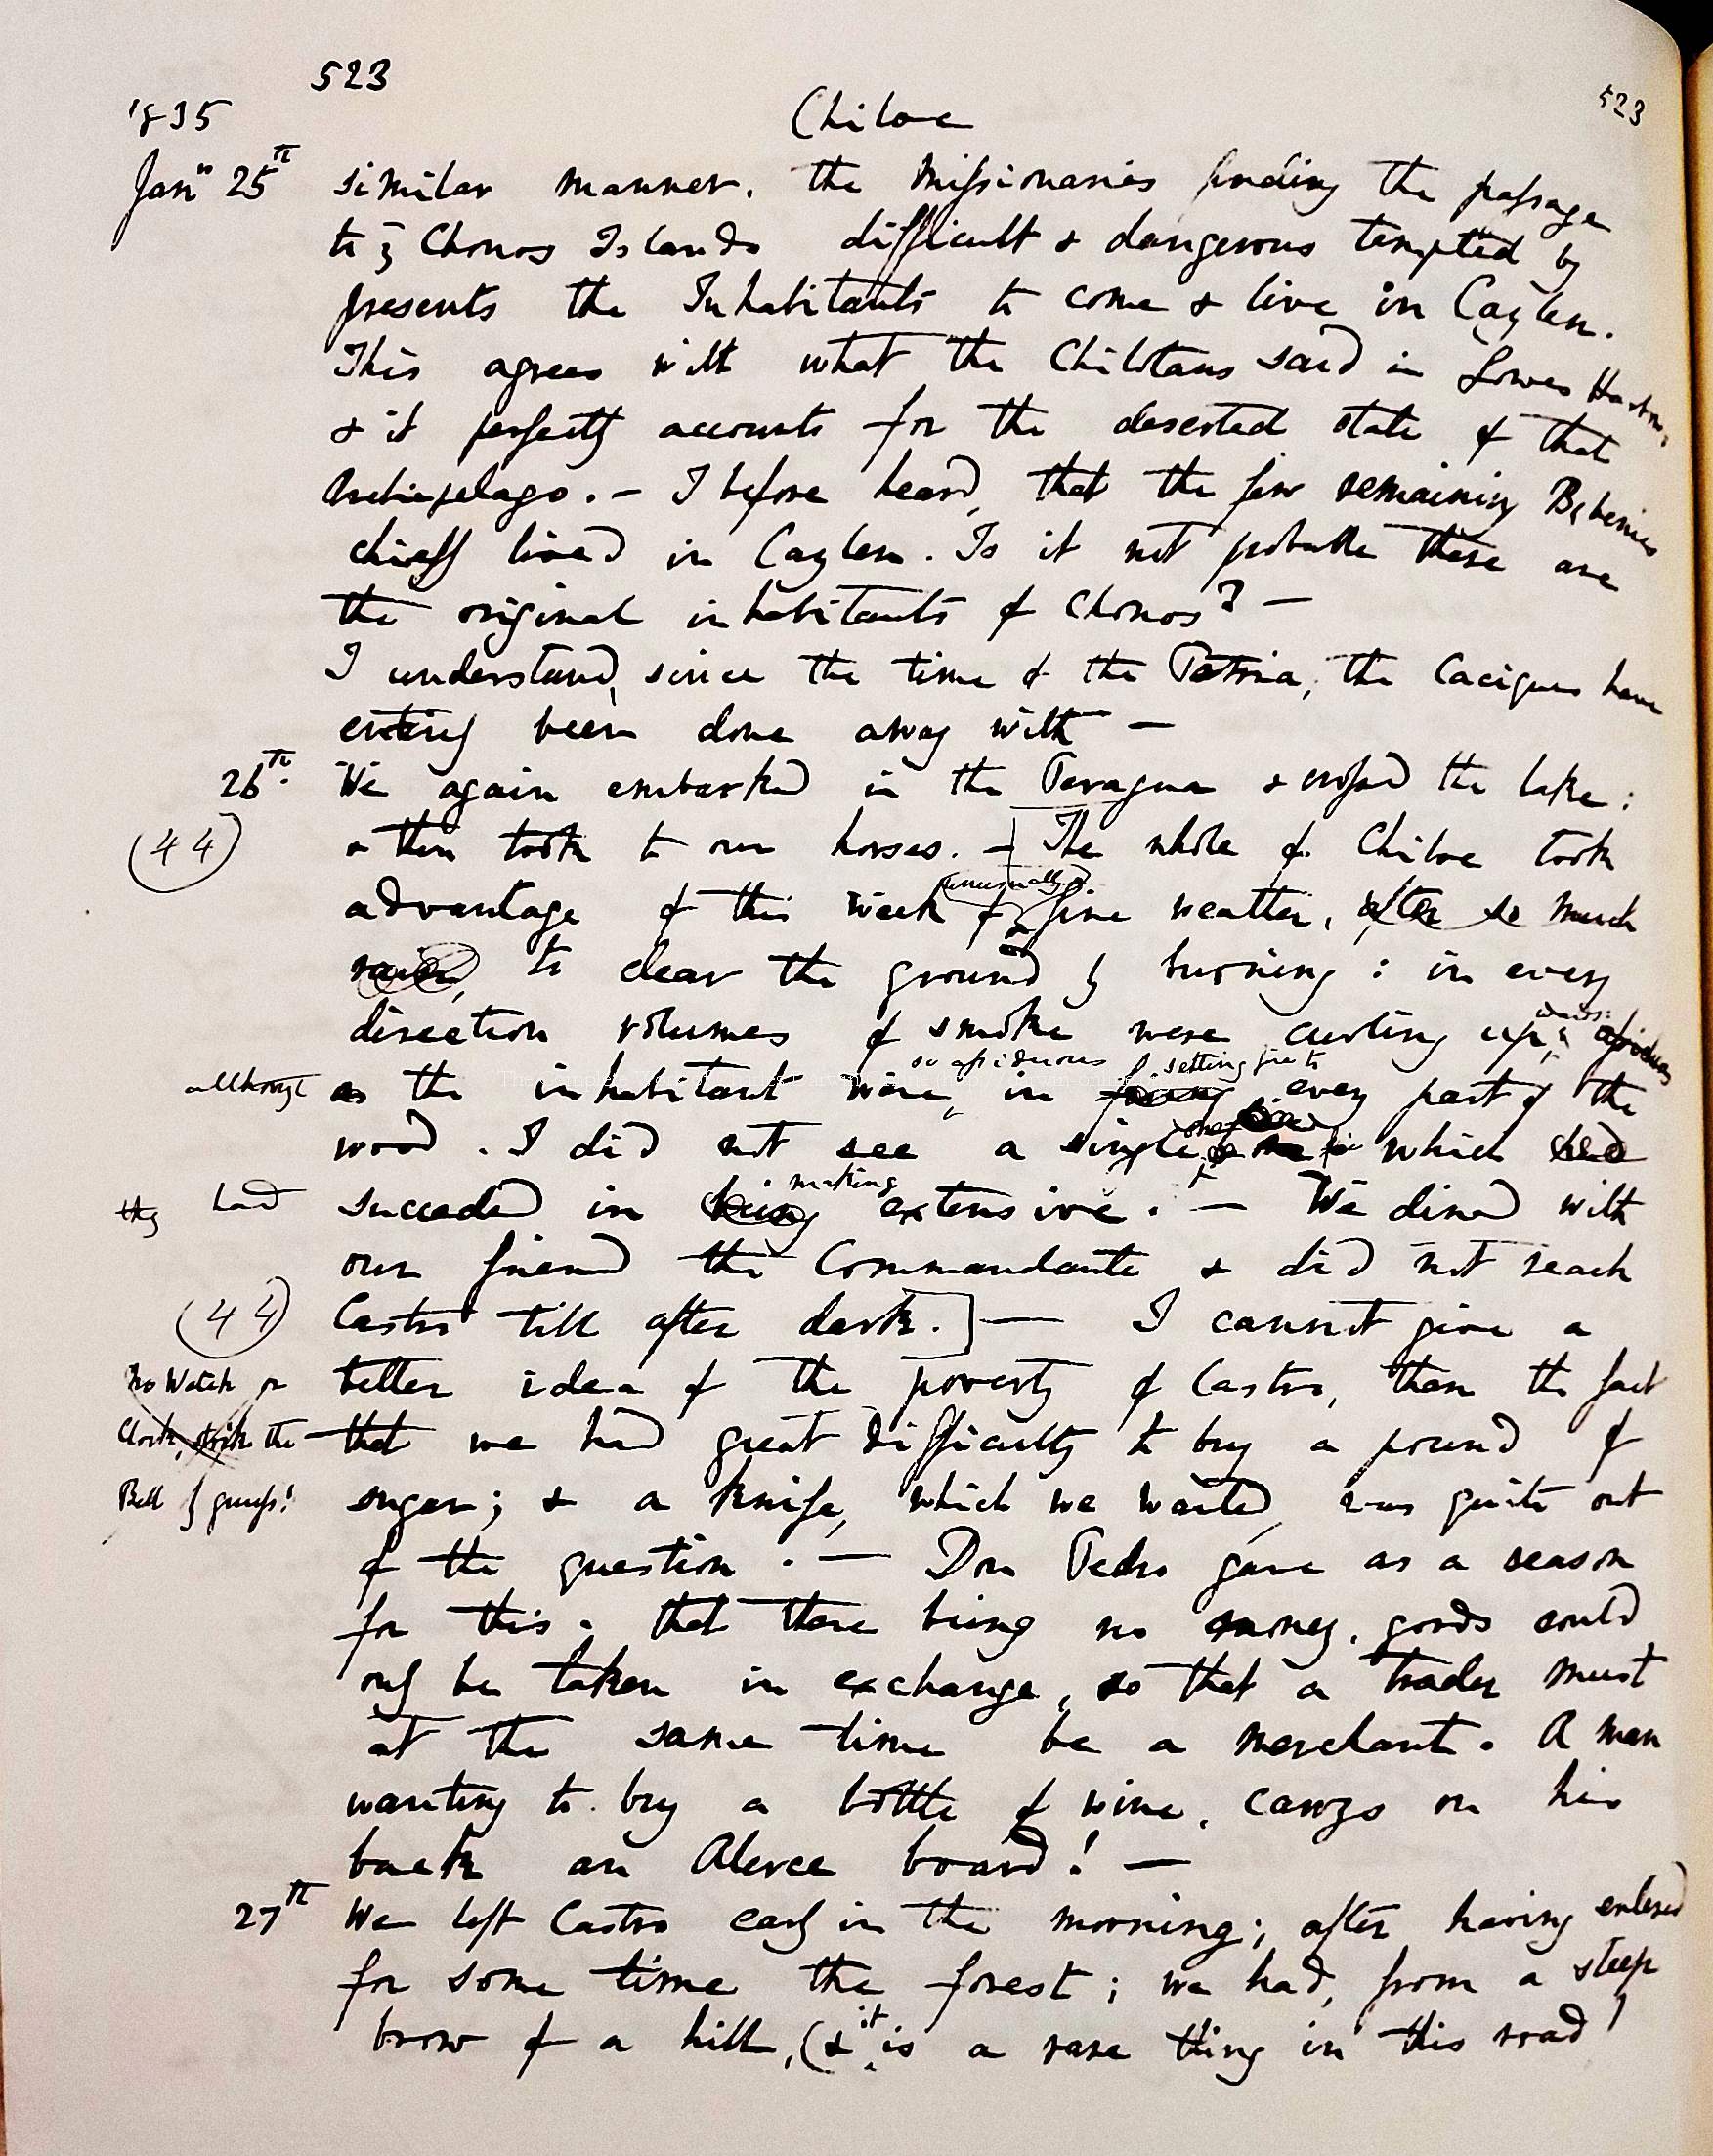 523
1835
Chiloe
523
Jan.y 25th similar manner. the Missionaries finding the passage
to ye Chonos Islands difficult & dangerous tempted by
presents the Inhabitants to come & live in Caylen.
This agrees with what the Chilotans said in Lowes Harbor,
& it perfectly accounts for the deserted state of that
Archipelago. — I before heard, that the few remaining
chiefs lived in Caylen. Is it not probable these are
the original inhabitants of Chonos? —
I understand, since the time of the Patria, the Caciques have
entirely been done away with —
26th. We again embarked in the Peragua & crossed the lake:
(44) & then took to our horses. — [The whole of Chiloe took
(unusually)
advantage of this week of fine weather, after so much
rain, to clear the ground by burning: in every
direction volumes of smoke were curling up,
so assiduous setting fire to
although as the inhabitant were, in every part of the
wood. I did not see a single which had
making
they had succeeded in being extensive. — We dined with
our friend the Commandante & did not reach
(44) Castro till after dark.] — I cannot give a
No Watch or better idea of the poverty of Castro, than the fact
Clock, strik the that we had great difficulty to buy a pound of
Bell by guess! sugar; & a knife, which we wanted, was quite out
of the question. — Don Pedro gave as a reason
for this. that there being no money, goods could
only be taken in exchange, so that a trader must
at the same time be a merchant. A man
wanting to buy a bottle of wine, carrys on his
back an Alerce board! —
27th We left Castro early in the morning; after having entered
for some time the forest; we had, from a steep
it
brow of a hill, (& is a rare thing in this road)